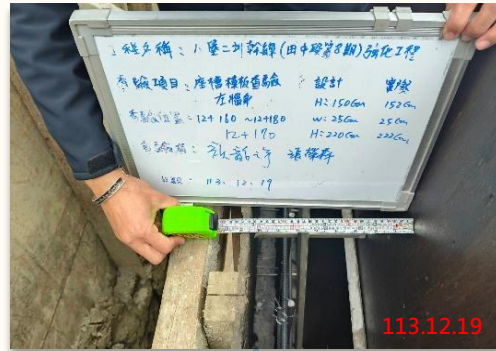 工程名稱：八堡二圳幹線(田中段第8期)強化工程
查驗項目：座槽模板查驗 設計 實際
左牆身 H：150cm 152cm
查驗位置：12+160～12+180 W：25cm 25cm
12+170 H：220cm 222cm
查驗員：
日期：113.12.19
113.12.19